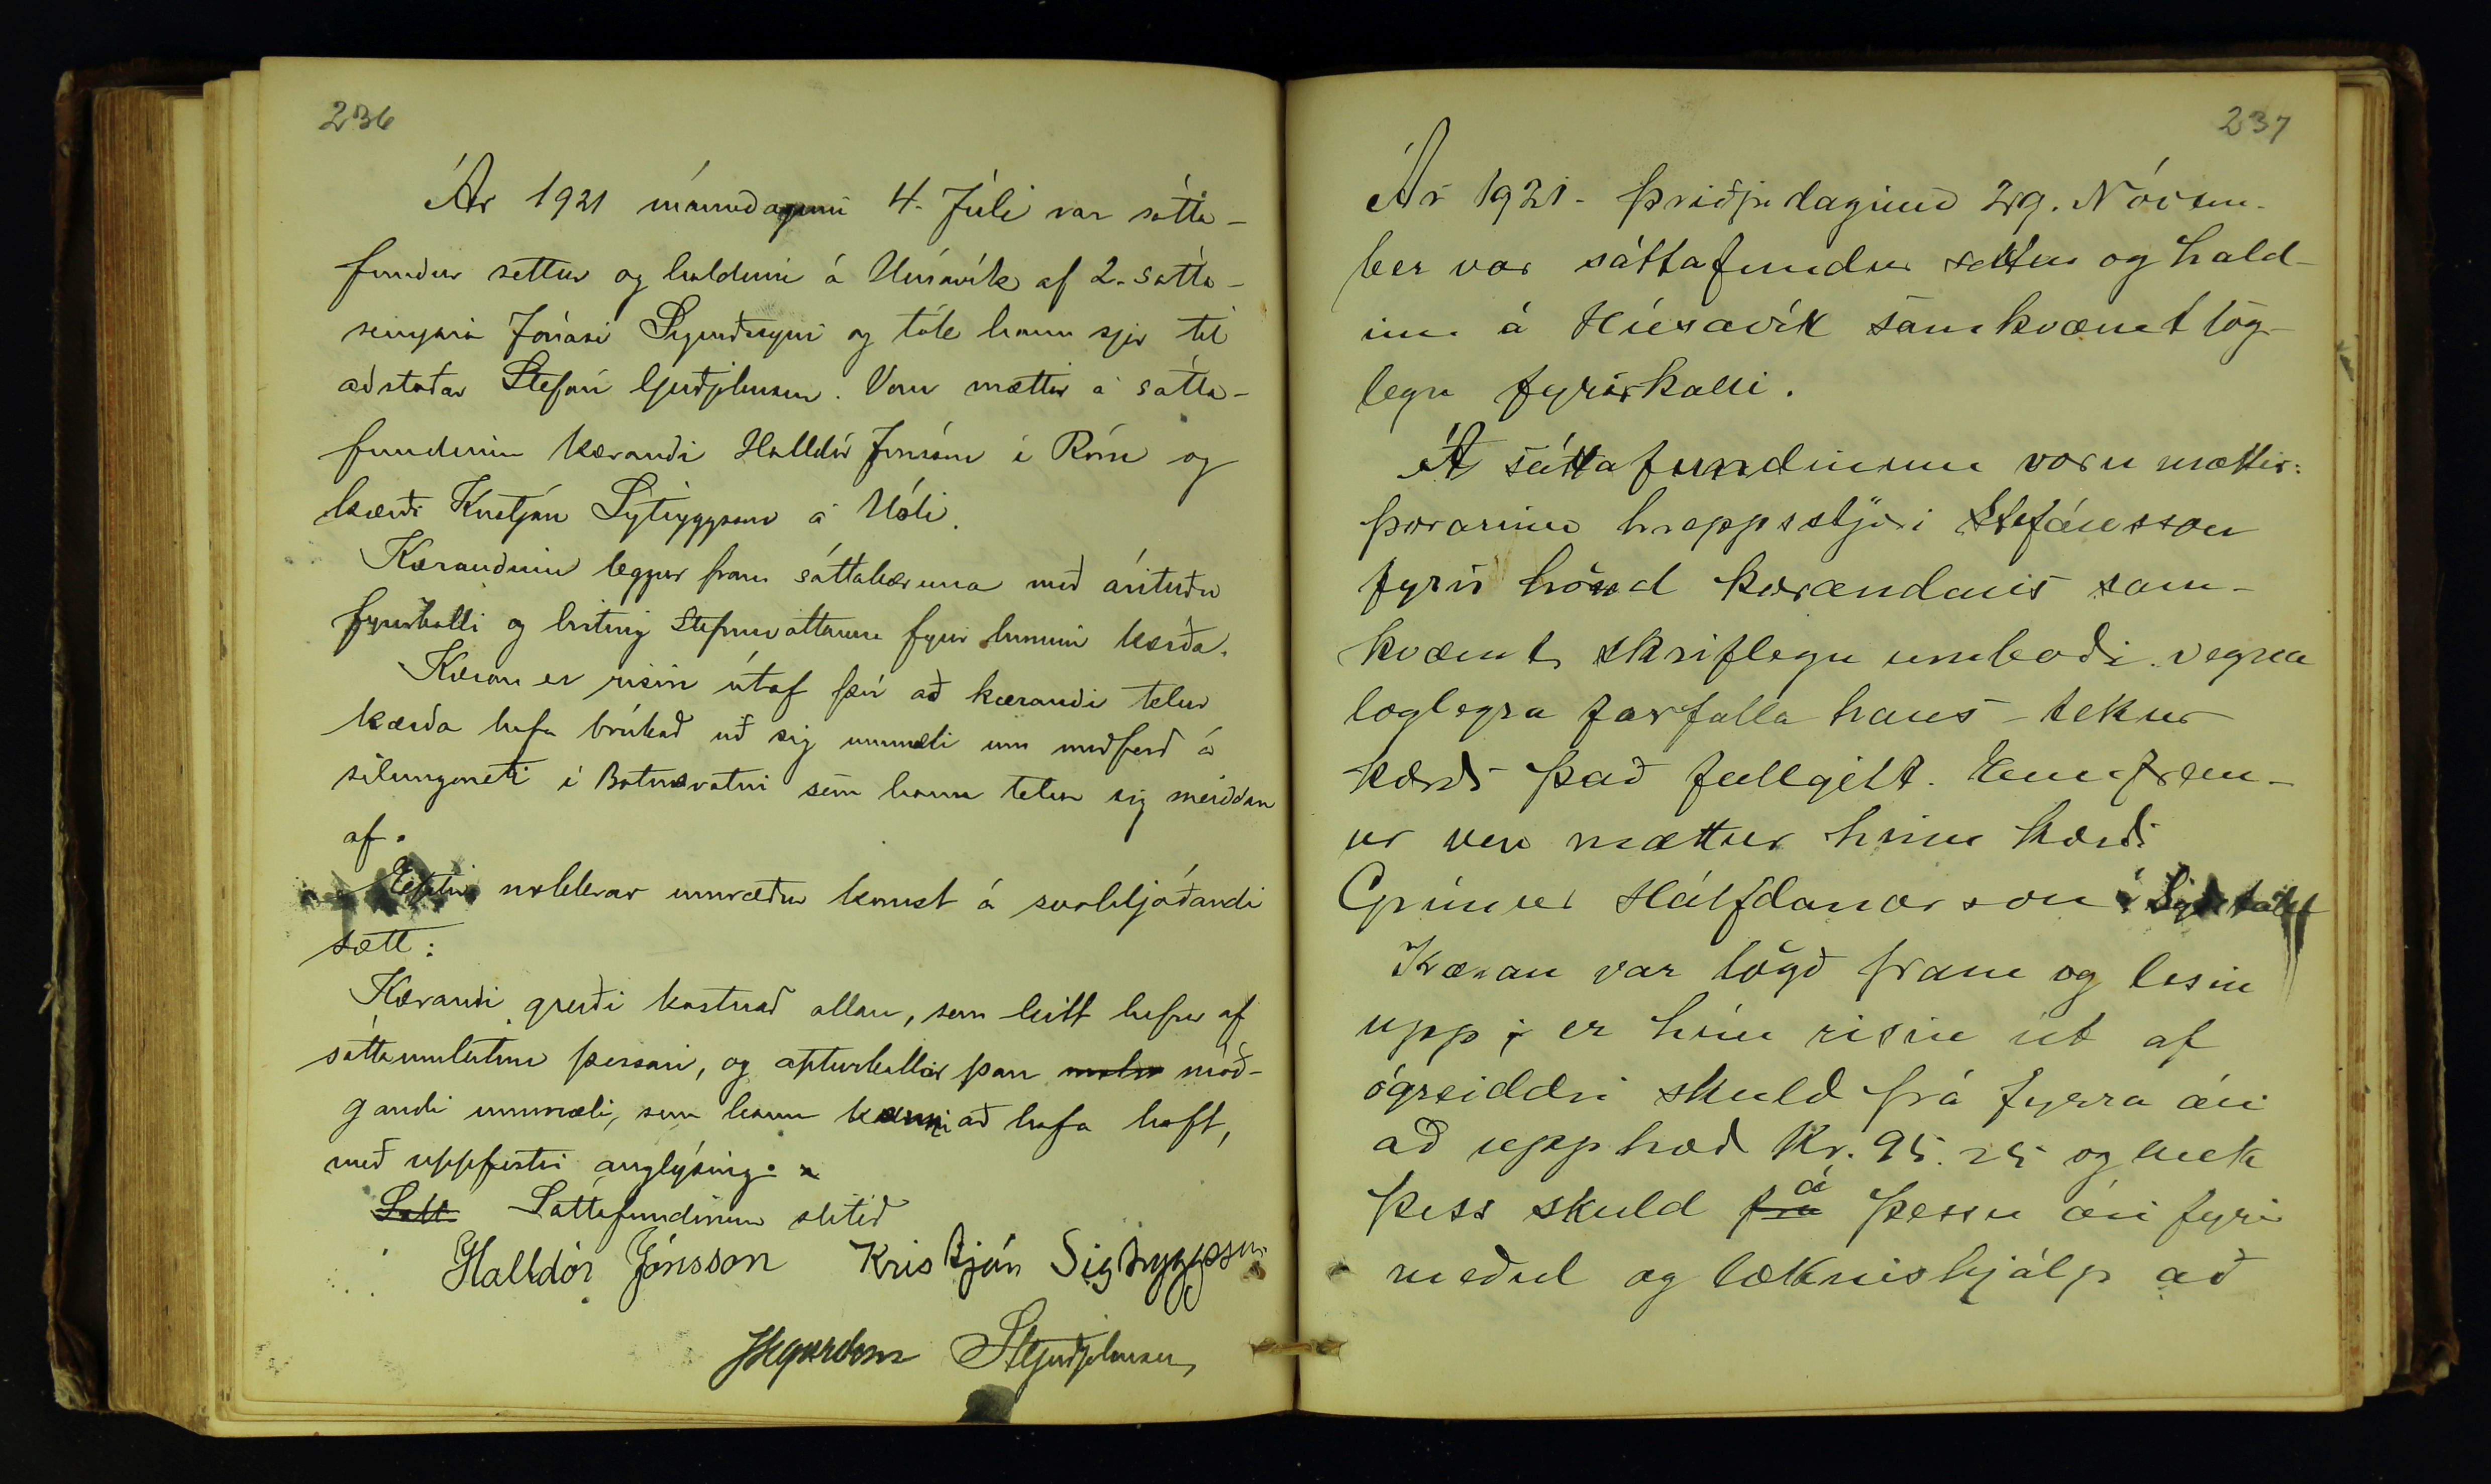 236
Ár 1921 mánudaginn 4. Júlí var sátta-
fundur settur og haldinn á Húsavík af 2. sátta-
semjara Jónasi Sigurðssyni og tók hann sjer til
aðstoðar Stefán Guðjohnsen. Voru mættir á sátta-
fundinum kærandi Halldór Jónsson í Róm og
kærði Kristján Sigtryggsson á Hóli.
Kærandinn leggur fram sáttakæruna með árituðu
fyrirkalli og birting stefnuvottanna fyrir hinum kærða.
Kæran er risin útaf því að kærandi telur
kærða hafa brúkað við sig ummæli um meðferð á
silunganeti í Botnsvatni sem hann telur sig meiddan
af.
Eptir nokkrar umræður komst á svohljóðandi
sætt:
Kærandi greiði kostnað allan, sem leitt hefur af
sáttaumleitun þessari, og apturkallar þau móð-
gandi ummæli, sem hann kann að hafa haft,
með uppfestri auglýsing.
Sátt Sáttafundinum slitið
Halldór Jónsson Kristján Sigtryggsson
JSigurdsson StGuðjohnsen
237
Ár 1921 - þriðjudaginn 29. Nóvem-
ber var sáttafundur settur og hald-
inn á Húsavík samkvæmt lög-
legu fyrirkalli.
Á sáttafundinum voru mættir:
Þorarinn hreppstjóri Stefánsson
fyrir hönd kærandans sam-
kvæmt skriflegu umboði vegna
loglegra forfalla hans - tekur
kærði það fullgilt. Ennfrem-
ur var mættur hinn kærði
Grímur Hálfdanarson í
Kæran var lögð fram og lesin
upp; er hún risin út af
ógreiddri skuld frá fyrra ári
að upphæð Kr. 95.25 og auk
þess skuld frá á þessu ári fyrir
meðul og læknishjálp að